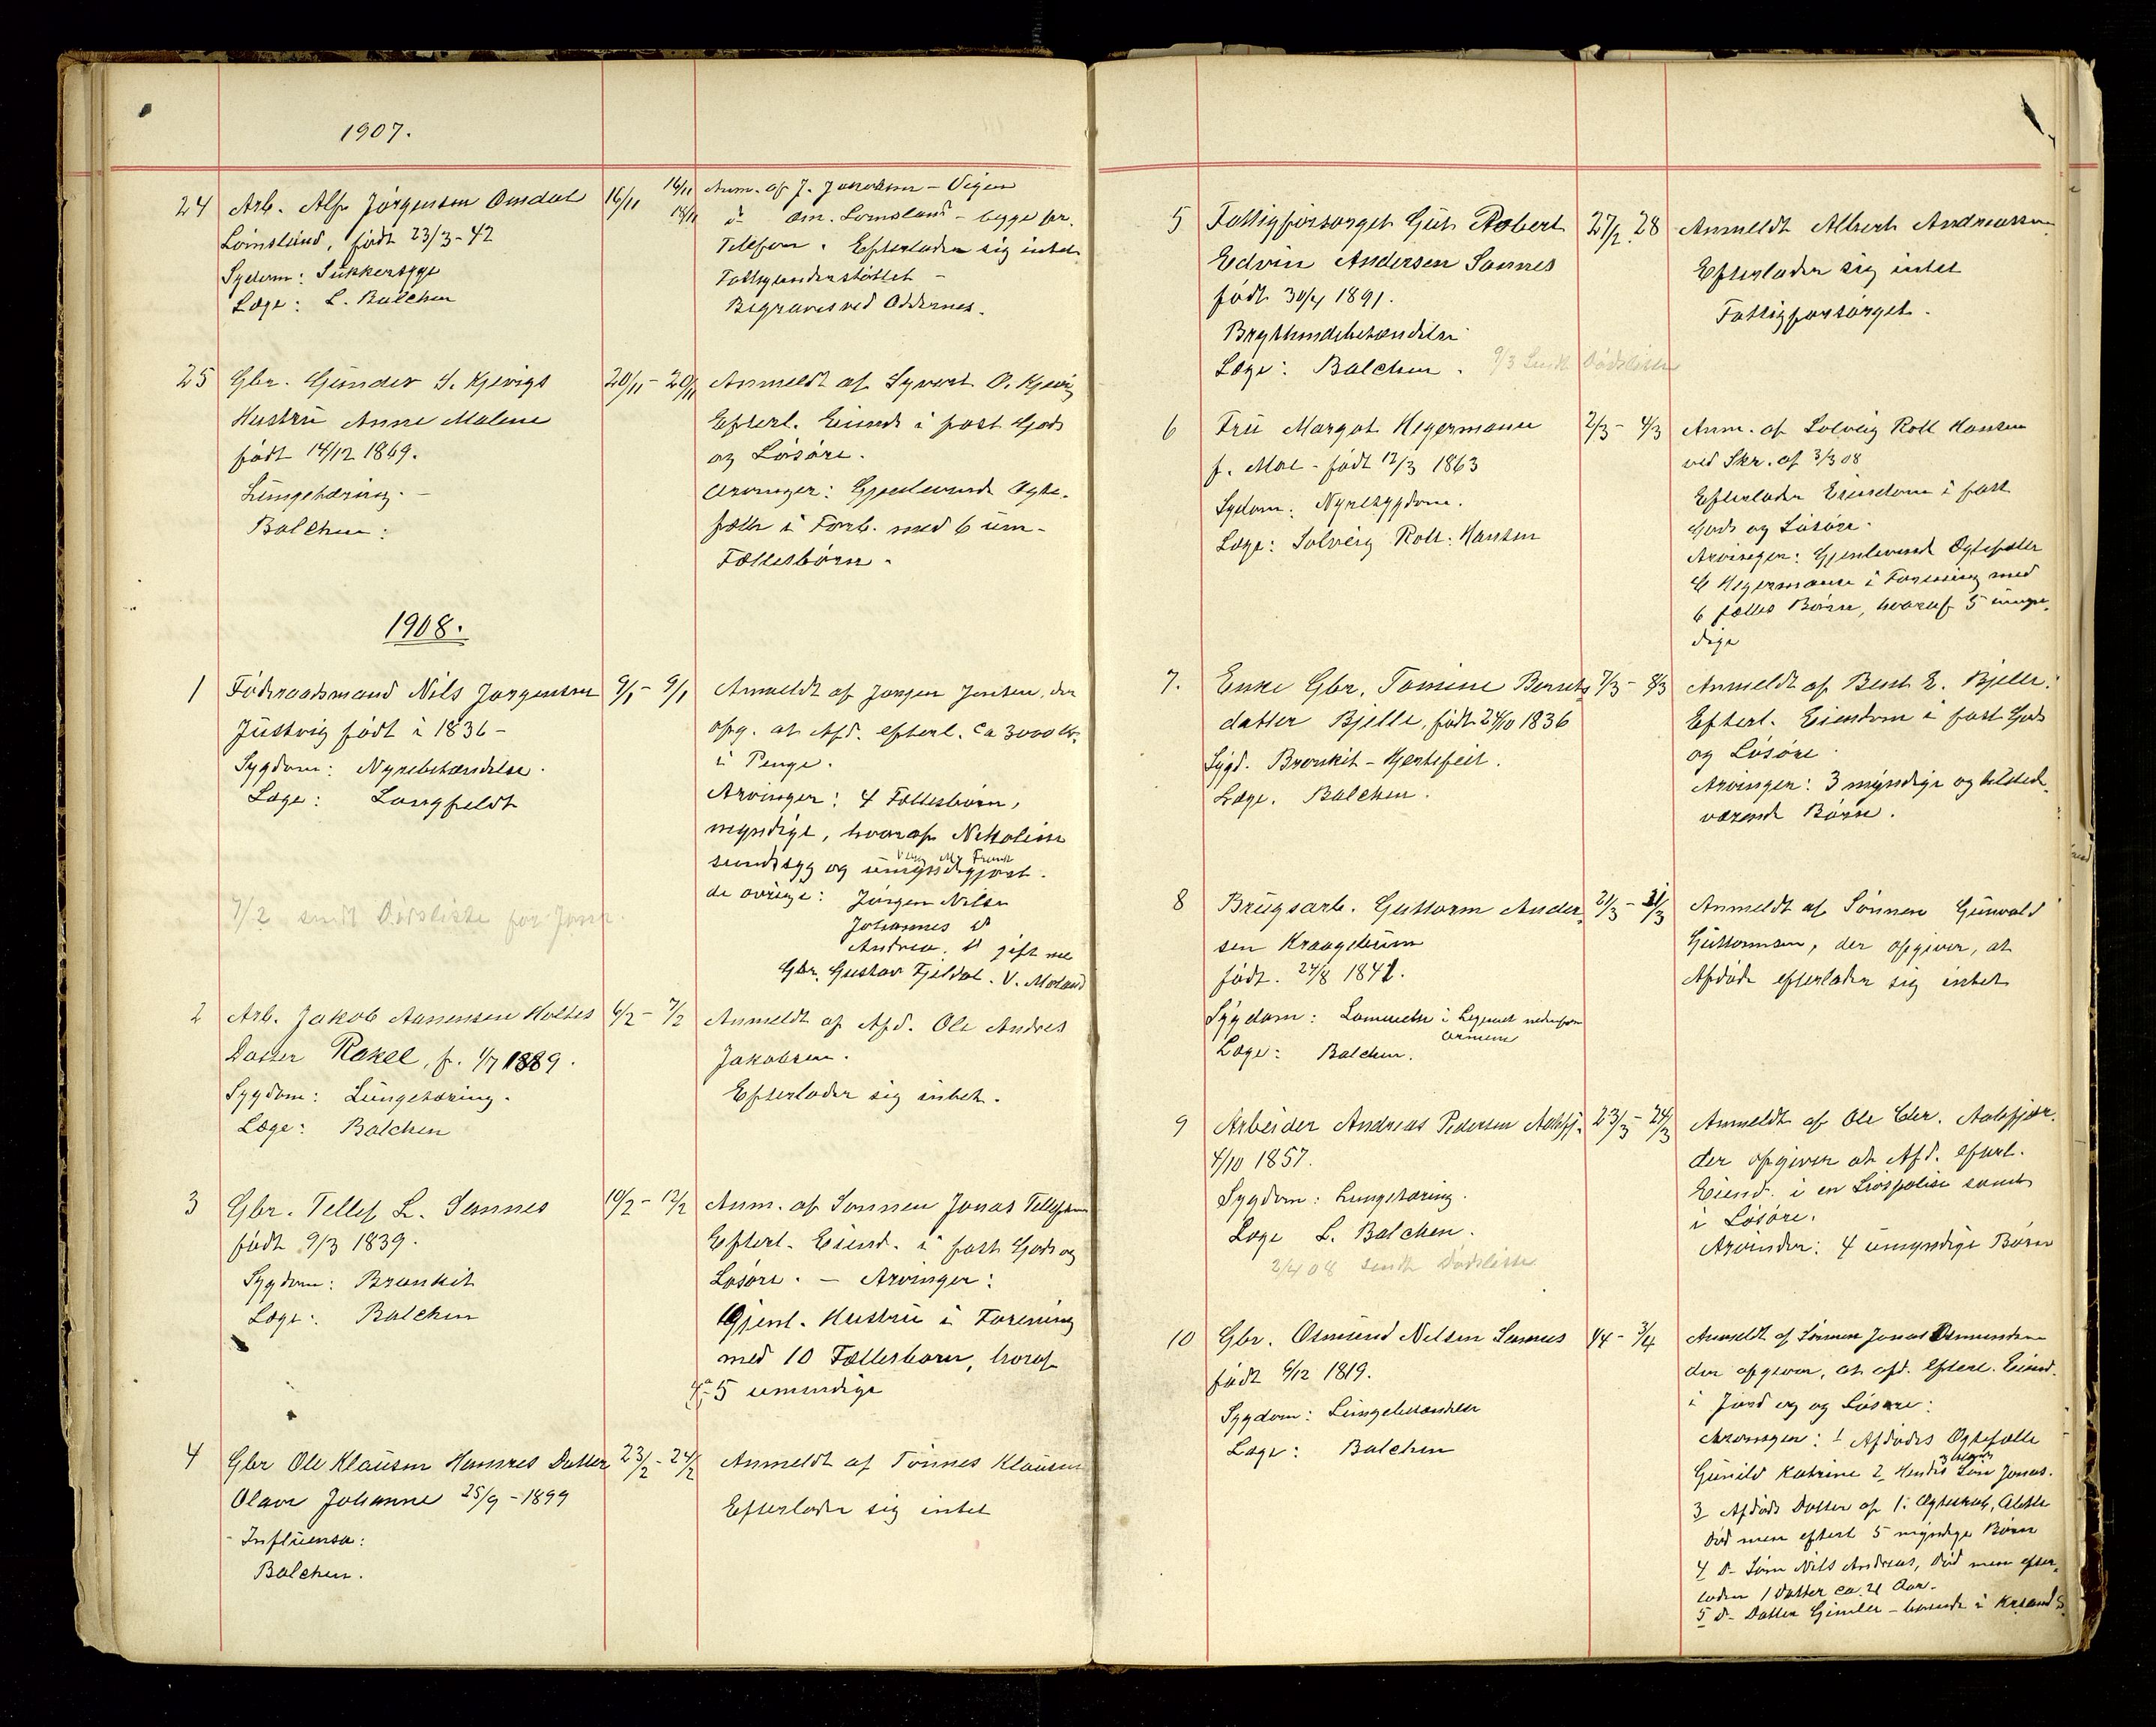 1907.
24 Arb. Alf Jörgensen Omdal 16/11 16/11 Anm. af J. - Vigen
18/11 do Om. Lomsland - begge pr.
Lömsland, födt 23/3-42
Telefon. Efterlader sig intet
Sydom: Sukkersyge
Fattigunderstöttet -
Læge: L. Balchen
Begraves ved Oddernes.
25 Gbr. Gunder S. Kjevigs 20/11 - 20/11 Anmeldt af Syvert O. Kjevig
Hustru Anne Malene
Efterl. Eiend. i fast Gods
födt 14/12 1869.
og Lösöre.
Lungetæring. -
Arvinger: Gjenlevende Ægte-
Balchen:
fælle i Forb. med 6 um-
Fællesbörn.
1908.
1 Föderaadsmand Nils Jörgensen 9/1 - 9/1 Anmeldt af Jörgen Jensen, der
Justvig födt i 1836 -
opg. at Afd. efterl. ca 3000 Kr.
Sygdom: Nyrebetændelse.
i Penge.
Læge: Langfeldt
Arvinger: 4 Fællesbörn,
myndige, hvoraf
sindssyg og umyndiggjort.
de övrige: Jörgen Nilsen
7/2 sendt Dödsliste for Janr.
Johannes do
Andrea do gift me
Gbr. Gustav Fjeldal. V. Moland
2 Arb. Jakob Aanensen Holtes 6/2 - 7/2 Anmeldt af Afd. Ole Andres
Datter Rakel, f. 1/7 1889.
Jakobsen.
Sygdom: Lungetæring.
Efterlader sig intet.
Læge: Balchen
3 Gbr. Tellef L. Sannes 10/2 - 12/2 Anm. af Sönnen Jonas Tellefsen
födt 9/3 1839.
Efterl. Eiend. i fast Gods og
Sygdom: Bronkit
Lösöre. - Arvinger:
Læge: Balchen
Gjenl. Hustru i Forening
med 10 Fællesbörn, hvoraf
4 a 5 umindige
4 Gbr Ole Klausen Hamres Datter 23/2 - 24/2 Anmeldt af Tönnes Klausen
Olava Johanne 25/9 - 1899
Efterlader sig intet
- Influensa:
Balchen.
5 Fattigforsörget Gut Robert 27/2 28 Anmeldt Albert Andreassen
Edvin Andersen Sannes
Efterlader sig intet
födt 30/4 1891.
Fattigforsörget.
Brysthindebetændelse
Læge: Balchen. 9/3 Sendt Dödsliste
6 Fru Margot Hegermann 2/3 - 4/3 Anm. af Solveig Roll Hansen
f. Moe - födt 12/3 1863
ved Skr. af 3/3 08
Sydom: Nyresygdom.
Efterlader Eiendom i fast
Læge: Solveig Roll-Hansen
Gods og Lösöre.
Arvinger: Gjenlevende Ægtefælle
Hegermann i Forening med
6 fælles Börn, hvoraf 5 umyn-
dige
7. Enke Gbr. Tomine Bernts 7/3 - 8/3 Anmeldt af Bent E. Bjelle.
datter Bjelle, födt 24/10 1836
Efterl. Eiendom i fast Gods
Sygd. Bronkit - Hjertefeil.
og Lösöre.
Læge. Balchen.
Arvinger: 3 myndige og tilsted-
værende Börn.
8 Brugsarb. Guttorm Ander- 21/3 - 21/3 Anmeldt af Sönnen Gunvald
sen Kraagebum
Guttormsen, der opgiver, at
födt. 24/8 1841.
Afdöde efterlader sig intet
Sygdom: Lammelse i Legemet nedenfor
armene
Læge: Balchen.
9 Arbeider Andreas Pedersen Aalefj. 23/3 - 24/3 Anmeldt af Ole Chr. Aalefjær.
4/10 1857.
der opgiver at Afd. efterl.
Sygdom: Lungetæring.
Eiend. i en Livspolise samt
Læge L. Balchen.
i Lösöre.
2/4 08 sendt Dödsliste
Arvinder: 4 umyndige Börn
10 Gbr. Osmund Nilsen Sannes 1/4 - 3/4 Anmeldt af Sönnen Jonas Osmundsen
födt 6/12 1819.
der opgiver, at afd. efterl. Eiend.
Sygdom: Lungebetændelse
i Jord og og Lösöre:
Læge: Balchen
Arvinger: 1 Afdödes Ægtefælle
Gunild Katrine 2 Hendes Sön Jonas.
3 Afdöde Datter af 1. Ægteskab,
död men efterl 5 myndige Börn
4 D- Sön Nils Andreas, död men efter-
lader 1 Datter ca. 21 Aar.
5 D- Datter - boende i Krsand S.